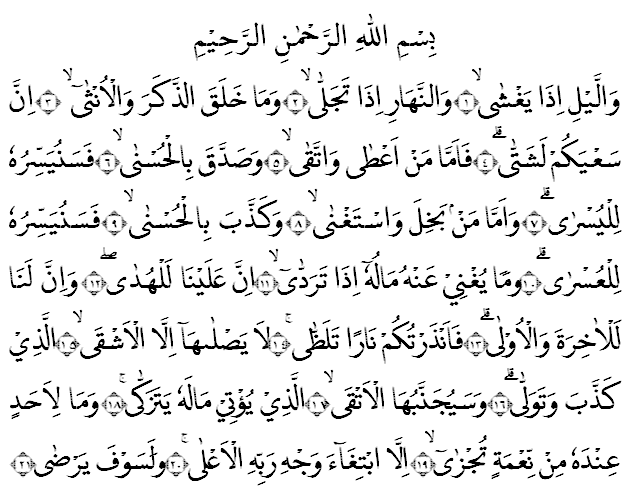 بِسْمِ اللهِ الرَّحْمٰنِ الرَّحِيْمِ
وَالَّيْلِ اِذَا يَغْشٰىۙ ﴿١﴾ وَالنَّهَارِ اِذَا تَجَلّٰىۙ ﴿٢﴾ وَمَا خَلَقَ الذَّكَرَ وَالْاُنْثٰىٓۙ ﴿٣﴾ اِنَّ
سَعْيَكُمْ لَشَتّٰىۗ ﴿٤﴾ فَاَمَّا مَنْ اَعْطٰى وَاتَّقٰىۙ ﴿٥﴾ وَصَدَّقَ بِالْحُسْنٰىۙ ﴿٦﴾ فَسَنُيَسِّرُهٗ
لِلْيُسْرٰىۗ ﴿٧﴾ وَاَمَّا مَنْۢ بَخِلَ وَاسْتَغْنٰىۙ ﴿٨﴾ وَكَذَّبَ بِالْحُسْنٰىۙ ﴿٩﴾ فَسَنُيَسِّرُهٗ
لِلْعُسْرٰىۗ ﴿١٠﴾ وَمَا يُغْنِيْ عَنْهُ مَالُهٗٓ اِذَا تَرَدّٰىٓۙ ﴿١١﴾ اِنَّ عَلَيْنَا لَلْهُدٰىۖ ﴿١٢﴾ وَاِنَّ لَنَا
لَلْاٰخِرَةَ وَالْاُوْلٰىۗ ﴿١٣﴾ فَاَنْذَرْتُكُمْ نَارًا تَلَظّٰىۚ ﴿١٤﴾ لَا يَصْلٰىهَآ اِلَّا الْاَشْقَىۙ ﴿١٥﴾ الَّذِيْ
كَذَّبَ وَتَوَلّٰىۗ ﴿١٦﴾ وَسَيُجَنَّبُهَا الْاَتْقَىۙ ﴿١٧﴾ الَّذِيْ يُؤْتِيْ مَالَهٗ يَتَزَكّٰىۚ ﴿١٨﴾ وَمَا لِاَحَدٍ
عِنْدَهٗ مِنْ نِّعْمَةٍ تُجْزٰىٓۙ ﴿١٩﴾ اِلَّا ابْتِغَاۤءَ وَجْهِ رَبِّهِ الْاَعْلٰىۚ ﴿٢٠﴾ وَلَسَوْفَ يَرْضٰى ﴿٢١﴾